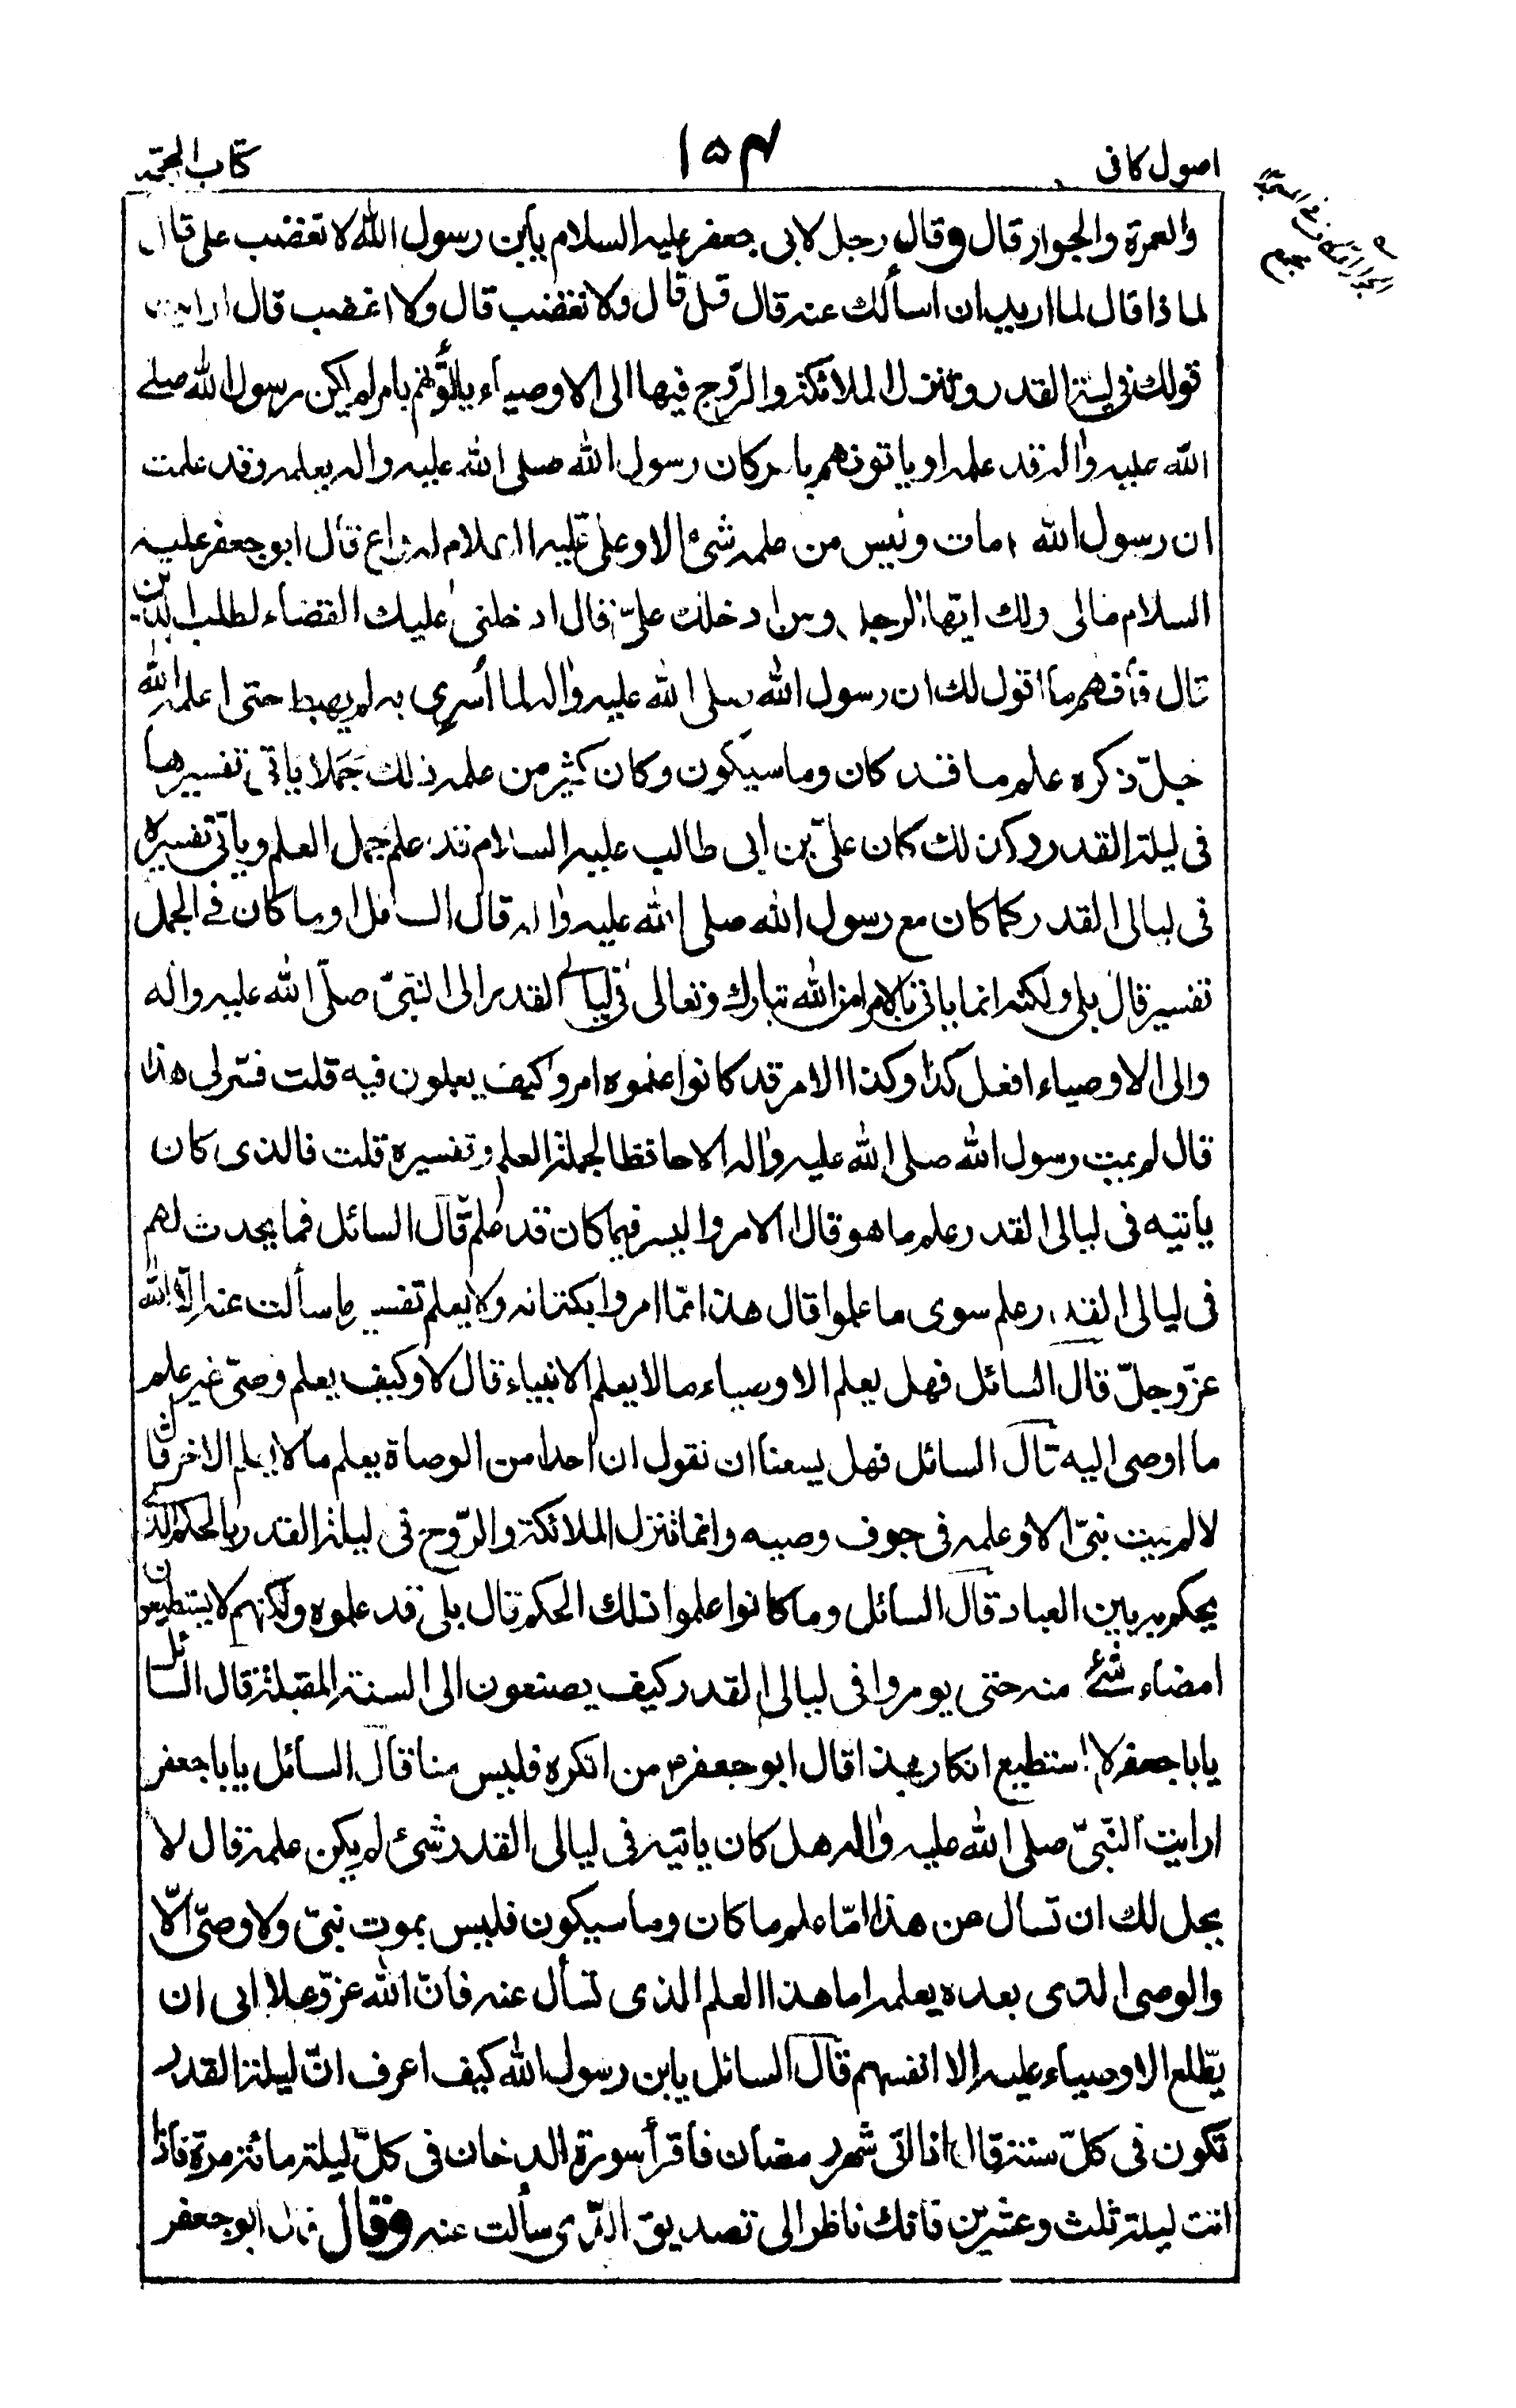 اصول كافى ١٥٤ كتاب الحجّة
والعمرة والجوار قال وقال رجل لابى جعفر عليه السلام يأبن رسول الله لا تغضب على قال
لما ذا قال لما اريد ان اسألك عنه قال قل قال ولا تغضب قال ولا اغضب قال ارايت
قولك فى ليلة القدر وتنزل الملائكة والرّوح فيها الى الاوصياء يأتونهم بامر لم يكن رسول الله صلى
الله عليه واله قد علمه او ياتونهم بامر كان رسول الله صلى الله عليه واله يعلمه وقد علمت
ان رسول الله مات وليس من علمه شئ الا وعلىّ عليه السلام له واع قال ابو جعفر عليه
السلام مالى ولك ايّها الرجل ومن ادخلك علىّ قال ادخلنى عليك القضاء لطلب الدين
قال فأفهم ما اقول لك ان رسول الله صلى الله عليه واله لما أسرى به لم يهبط حتى اعلمه الله
جلّ ذكره علم ما قد كان وما سيكون وكان كثير من علمه ذلك جملا ياتى تفسيرها
فى ليلة القدر وكذلك كان علىّ بن ابى طالب عليه السلام قد علم جمل العلم وياتى تفسيره
فى ليالى القدر كما كان مع رسول الله صلى الله عليه واله قال السائل او ما كان فى الجمل
تفسير قال بلى ولكنه انما ياتى بالامر من الله تبارك وتعالى فى ليالى القدر الى النبىّ صلّى الله عليه واله
والى الاوصياء افعل كذا وكذا الامر قد كانوا علموه امروا كيف يعملون فيه قلت فسّر لى هذا
قال لم يمت رسول الله صلى الله عليه واله الا حافظا لجملة العلم وتفسيره قلت فالذى كان
ياتيه فى ليالى القدر علم ما هو قال الامر واليسر فيما كان قد علم قال السائل فما يحدث لهم
فى ليالى القدر علم سوى ما علموا قال هذا ممّا امروا بكتمانه ولا يعلم تفسير ما سألت عنه الّا الله
عزّ وجلّ قال السائل فهل يعلم الاوصياء ما لا يعلم الانبياء قال لا وكيف يعلم وصىّ غير علم
ما اوصى اليه قال السائل فهل يسعنا ان نقول ان احدا من الوصاة يعلم ما لا يعلم الاخر قال
لا لم يمت نبىّ الا وعلمه فى جوف وصيه وانما تنزل الملائكة والرّوح فى ليلة القدر بالحكم الذى
يحكم به بين العباد قال السائل وما كانوا علموا ذلك الحكم قال بلى قد علموه ولكنهم لا يستطيعون
امضاء شئ منه حتى يومروا فى ليالى القدر كيف يصنعون الى السنة المقبلة قال السائل
يابا جعفر لا استطيع انكار هذا قال ابو جعفر من انكره فليس منا قال السائل يابا جعفر
ارايت النّبىّ صلى الله عليه واله هل كان ياتيه فى ليالى القدر شئ لم يكن علمه قال لا
يحل لك ان تسال عن هذا امّا علم ما كان وما سيكون فليس يموت نبىّ ولا وصىّ الّا
والوصى الذى بعده يعلمه اما هذا العلم الذى تسأل عنه فانّ الله عزّ وعلا ابى ان
يطّلع الاوصياء عليه الا انفسهم قال السائل يابن رسول الله كيف اعرف انّ ليلة القدر
تكون فى كلّ سنة قال اذا اتى شهر رمضان فاقرأ سورة الدخان فى كلّ ليلة مائة مرة فاذا
اتت ليلة ثلث وعشرين فانك ناظر الى تصديق الذى سألت عنه وقال قال ابو جعفر